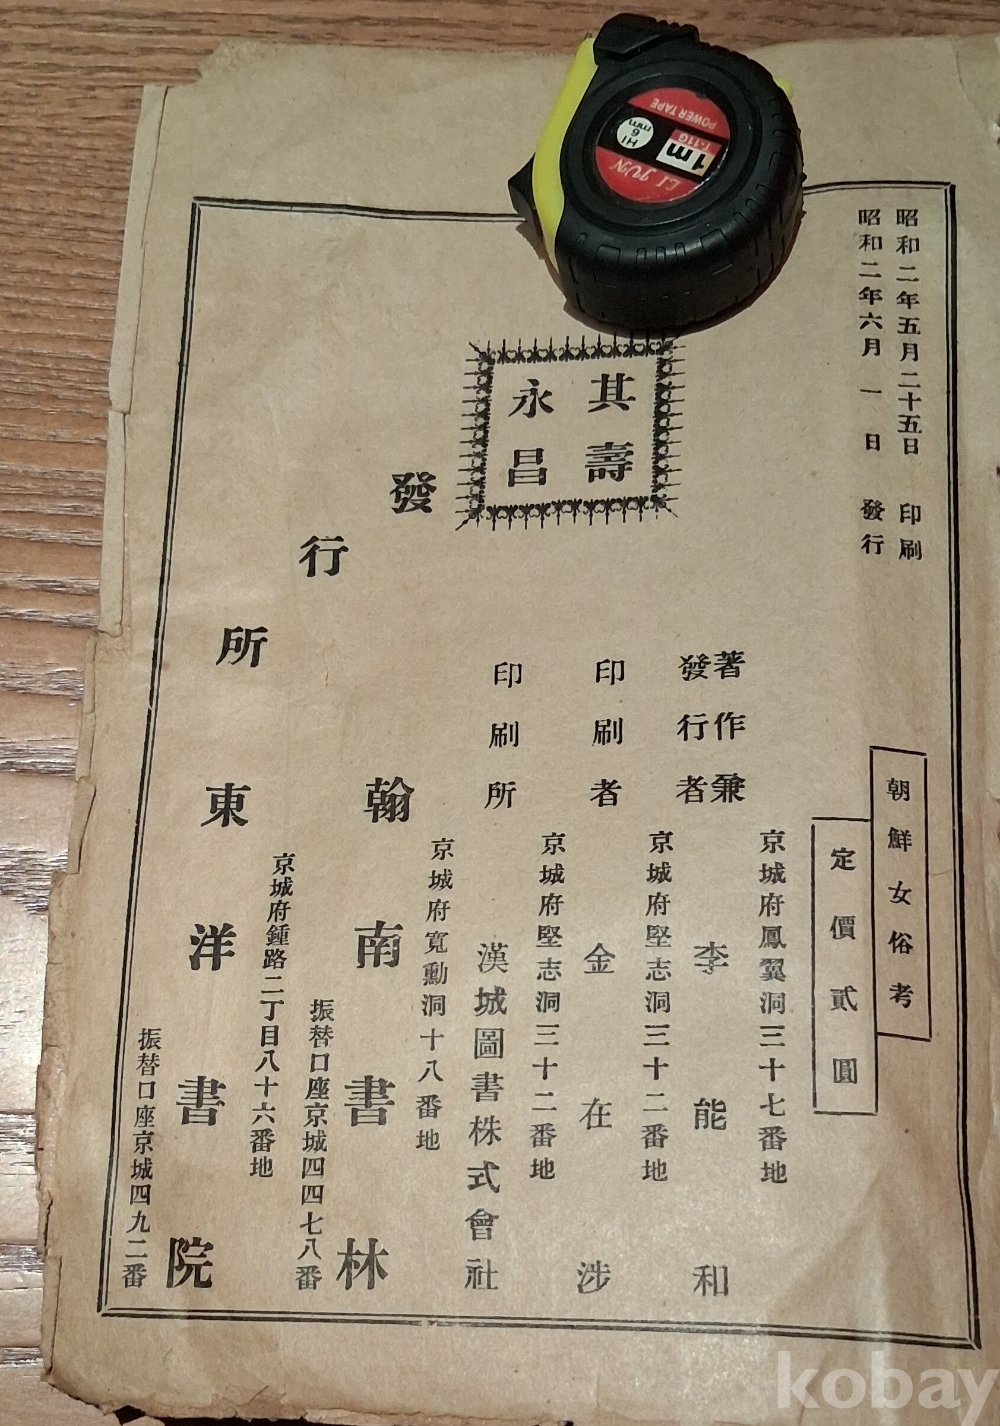 昭和二年五月二十五日 印刷
昭和二年六月一日 發行
朝鮮女俗考
定價貳圓
京城府鳳翼洞三十七番地
著作兼
發行者 李能和
京城府堅志洞三十二番地
印刷者 金在涉
京城府堅志洞三十二番地
印刷所 漢城圖書株式會社
其壽
永昌
發行所
京城府寬勳洞十八番地
翰南書林
振替口座京城四四七八番
京城府鍾路二丁目八十六番地
東洋書院
振替口座京城四九二番
LI JUN
1m
T-11G
POWER TAPE
HI
6
mm
kobay